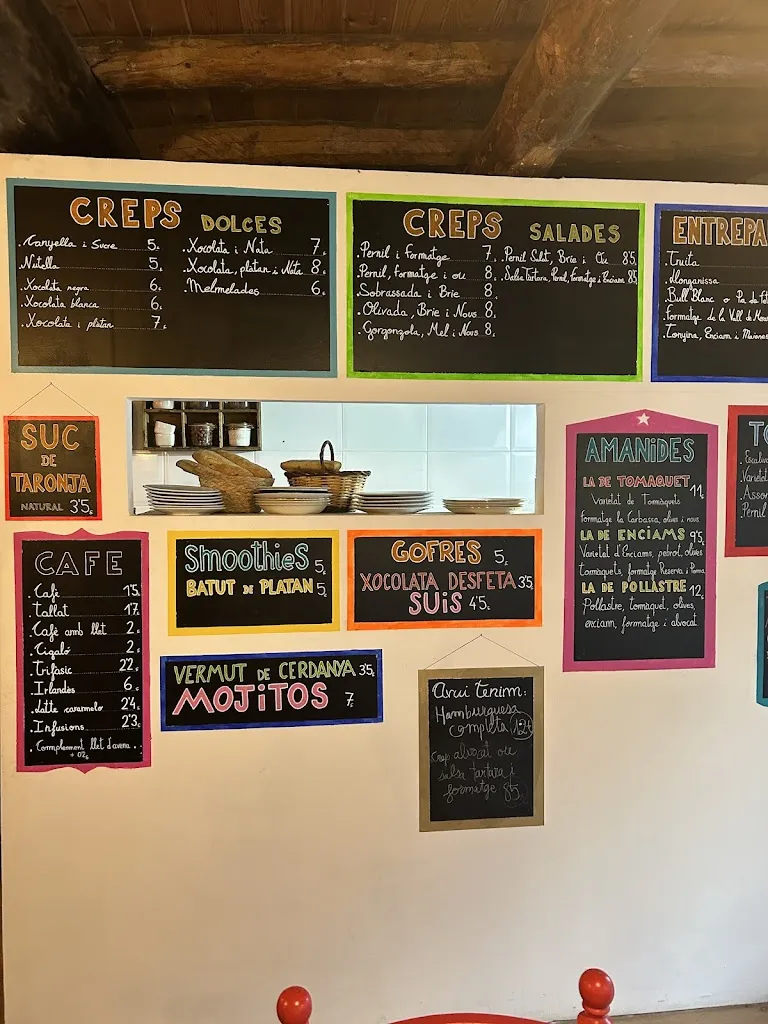 CREPS DOLCES
. Canyella i Sucre 5€
. Nutella 5€
. Xocolata negra 6€
. Xocolata blanca 6€
. Xocolata i platan 7€
. Xocolata i Nata 7€
. Xocolata, platan i Nata 8€
. Melmelades 6€
CREPS SALADES
. Pernil i formatge 7€
. Pernil, formatge i ou 8€
. Sobrassada i Brie 8€
. Olivada, Brie i Nous 8€
. Gorgonzola, Mel i Nous 8€
. Pernil Salat, Brie i Ou 8'5€
. Salsa Tartara, Pernil, Formatge i Enciam 8'5€
ENTREPA
. Truita
. Llonganissa
. Bull Blanc o
. Formatge de la Vall de
. Tonyina, Enciam i
SUC
DE
TARONJA
NATURAL 3'5€
CAFE
. Cafè 1'5€
. Tallat 1'7€
. Cafè amb llet 2€
. Cigaló 2€
. Trifàsic 2'2€
. Irlandès 6€
. Latte caramelo 2'4€
. Infusions 2'3€
. Complement llet d'avena
+ 0'2€
Smoothies 5€
BATUT DE PLATAN 5€
GOFRES 5€
XOCOLATA DESFETA 3'5€
SUiS 4'5€
VERMUT DE CERDANYA 3'5€
MOJiTOS 7€
Avui Tenim:
Hamburguesa
completa 12€
Crep alvocat ou
salsa tartara i
formatge 8'5
AMANiDES
LA DE TOMAQUET 11€
Varietat de Tomàquets
formatge la Carbassa, olives i nous
LA DE ENCIAMS 9'5€
Varietat d'Enciams, pebrot, olives
tomàquets, formatge Reserva i Poma
LA DE POLLASTRE 12€
Pollastre, tomàquet, olives,
enciam, formatge i alvocat
TO
Varietat
Pernil